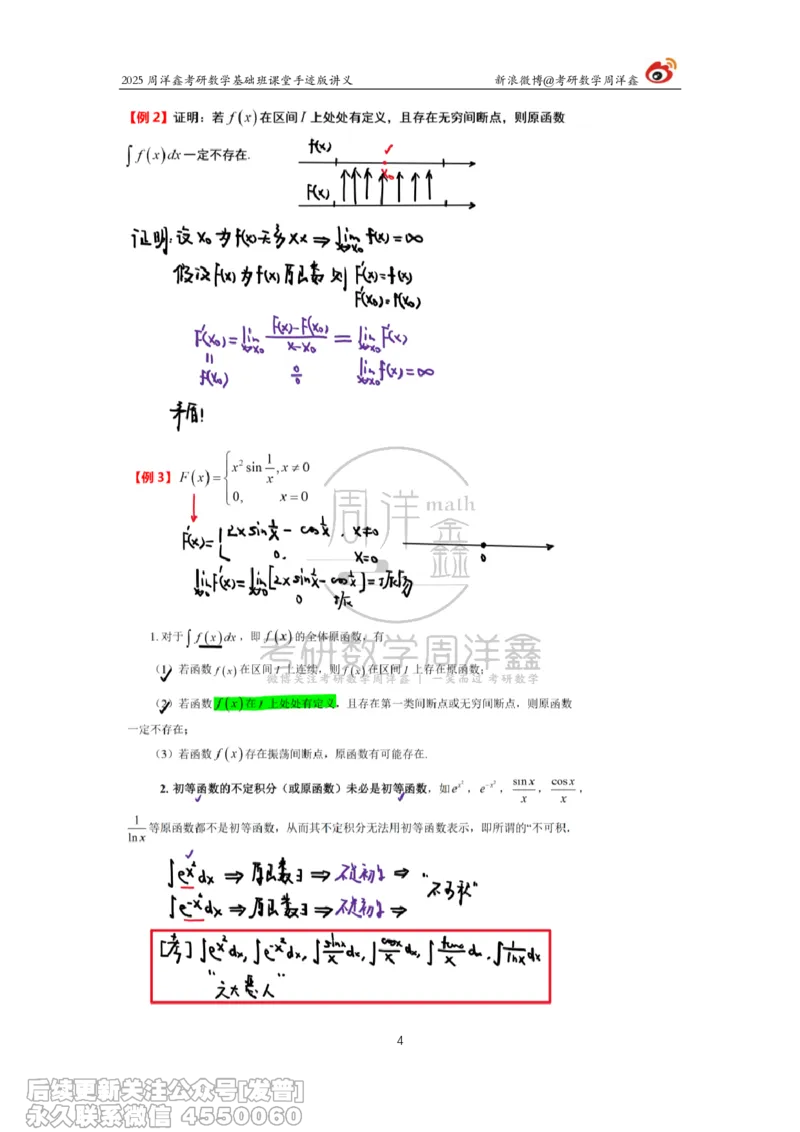 2025 周洋鑫考研数学基础班课堂手迹版讲义 新浪微博@考研数学周洋鑫
【例 2】证明：若 f(x) 在区间 I 上处处有定义，且存在无穷间断点，则原函数
∫f(x)dx 一定不存在.
f(x)
x₀
F(x)
证明: 设 x₀ 为 f(x) 无穷 xx ⇒ lim_{x→x₀} f(x)=∞
假设 F(x) 为 f(x) 原函数 则 F'(x)=f(x)
F'(x₀)=f(x₀)
F'(x₀)=lim_{x→x₀} (F(x)-F(x₀))/(x-x₀) = lim_{x→x₀} F'(x)
=
f(x₀) 0/0 lim_{x→x₀} f(x)=∞
矛盾!
【例 3】F(x)={x² sin 1/x, x≠0
0, x=0
F'(x)={2x sin 1/x - cos 1/x, x≠0
0, x=0
0
lim_{x→0} F'(x)=lim_{x→0}[2x sin 1/x - cos 1/x]=
0
周洋鑫 math
1. 对于 ∫f(x)dx，即 f(x) 的全体原函数，有
考研数学周洋鑫
（1）若函数 f(x) 在区间 I 上连续，则 f(x) 在区间 I 上存在原函数；
微博关注考研数学周洋鑫 | 一笑而过考研数学
（2）若函数 f(x) 在 I 上处处有定义，且存在第一类间断点或无穷间断点，则原函数
一定不存在；
（3）若函数 f(x) 存在振荡间断点，原函数有可能存在.
2. 初等函数的不定积分（或原函数）未必是初等函数，如 e^{x²}，e^{-x²}，sin x/x，cos x/x，
1/ln x 等原函数都不是初等函数，从而其不定积分无法用初等函数表示，即所谓的“不可积.
∫e^{x²}dx ⇒ 原函数∃ ⇒ 不是初等 ⇒ “不可积”
∫e^{-x²}dx ⇒ 原函数∃ ⇒ 不是初等 ⇒
[考] ∫e^{x²}dx, ∫e^{-x²}dx, ∫sinx/x dx, ∫cosx/x dx, ∫tanx/x dx, ∫1/lnx dx
“六大恶人”
4
后续更新关注公众号[发普]
永久联系微信 4550060